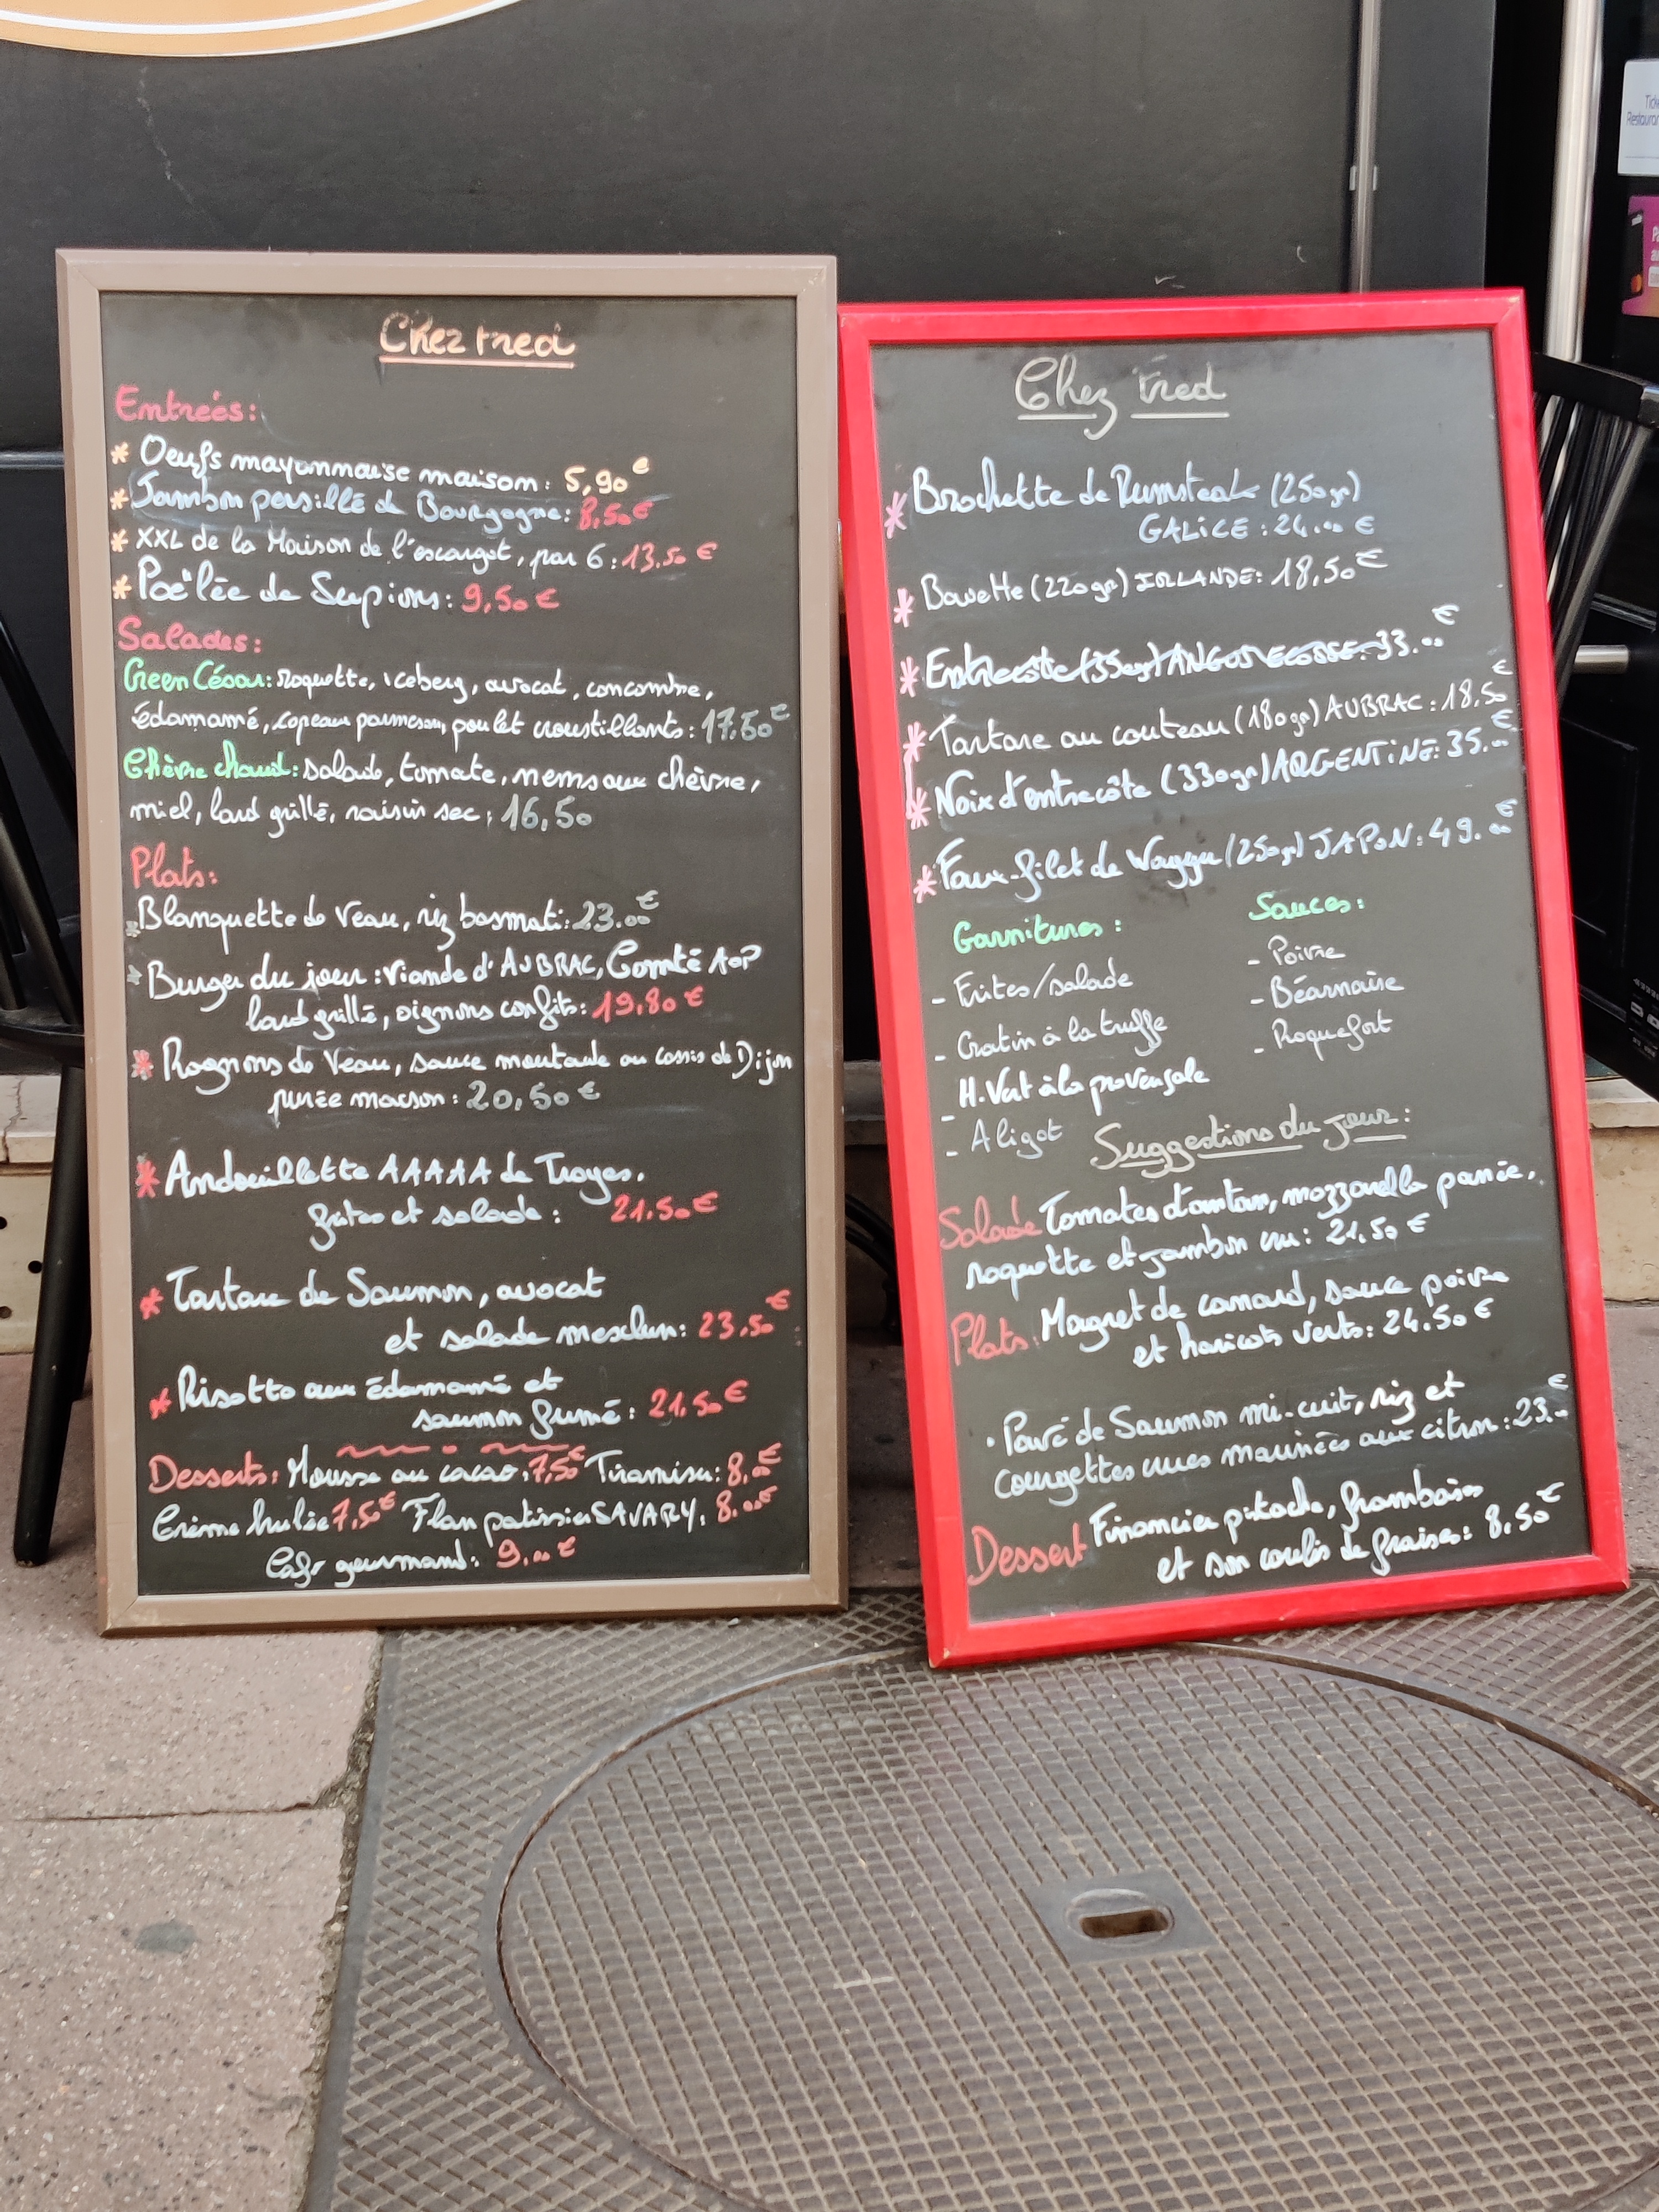 Chez Fred
Entrées:
* Oeufs mayonnaise maison: 5,90€
* Jambon persillé de Bourgogne: 8,50€
* XXL de la Maison de l'escargot, par 6: 13.50€
* Poêlée de Supions: 9,50€
Salades:
Green César: roquette, iceberg, avocat, concombre,
édamamé, copeaux parmesan, poulet croustillants: 17.50€
Chèvre chaud: salade, tomate, nems aux chèvre,
miel, lard grillé, raisin sec: 16,50
Plats:
* Blanquette de Veau, riz basmati: 23.00€
* Burger du jour: Viande d'AUBRAC, Comté AOP
lard grillé, oignons confits: 19,80€
* Rognons de Veau, sauce moutarde au cassis de Dijon
purée maison: 20,50€
* Andouillette AAAAA de Troyes.
frites et salade: 21.50€
* Tartare de Saumon, avocat
et salade mesclun: 23.50€
* Risotto aux édamamé et
saumon fumé: 21.50€
Desserts: Mousse au cacao: 7,50€ Tiramisu: 8.00€
Crème brulée 7,5€ Flan patissier SAVARY: 8.00€
Café gourmand: 9.00€
Chez Fred
* Brochette de Rumsteak (250gr)
GALICE: 24.00€
* Bavette (220gr) IRLANDE: 18,50€
* Entrecôte (350gr) ANGUS ECOSSE: 33.00€
* Tartare au couteau (180gr) AUBRAC: 18,50€
* Noix d'entrecôte (330gr) ARGENTINE: 35.00€
* Faux-filet de Waggu (250gr) JAPON: 49.00€
Garnitures: Sauces:
- Frites/salade - Poivre
- Gratin à la truffe - Béarnaise
- H.Vert à la provençale - Roquefort
- Aligot
Suggestions du jour:
Salade Tomates d'antan, mozzarella panée,
roquette et jambon cru: 21,50€
Plats: Magret de canard, sauce poivre
et haricots verts: 24.50€
. Pavé de Saumon mi-cuit, riz et
courgettes crues marinées aux citron: 23.00€
Dessert Financier pistache, framboises
et son coulis de fraises: 8,50€
Restaurant